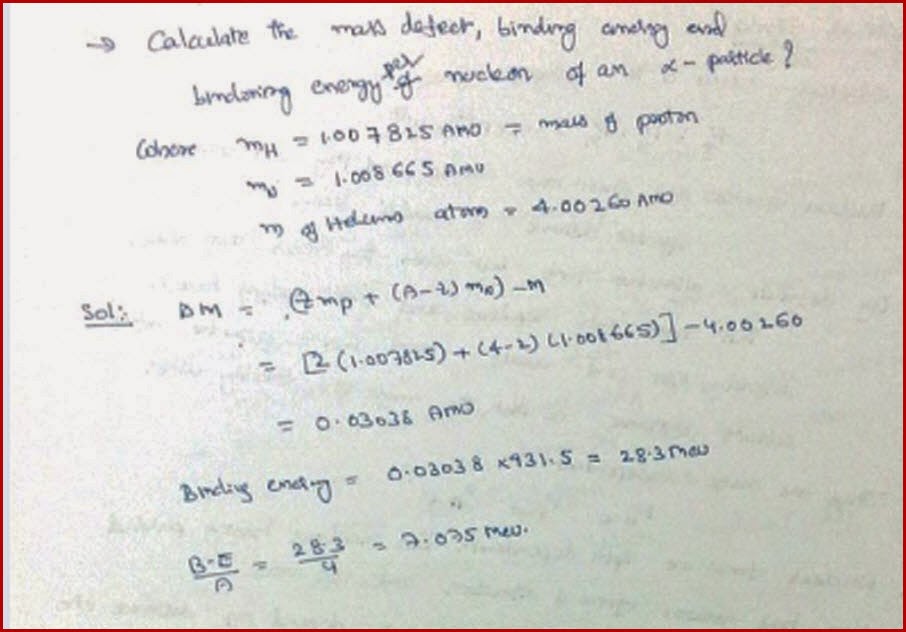 → Calculate the mass defect, binding energy and
bindering energy per of nucleon of an α - particle?
Where mH = 1.007825 AMU = mass of proton
mN = 1.008665 AMU
m of Helium atom = 4.00260 AMU
Sol: ΔM = (Zmp + (A-Z) mn) - M
= [2 (1.007825) + (4-2) (1.008665)] - 4.00260
= 0.03038 AMU
Binding energy = 0.03038 x 931.5 = 28.3 Mev
B.E/A = 28.3/4 = 7.075 Mev.